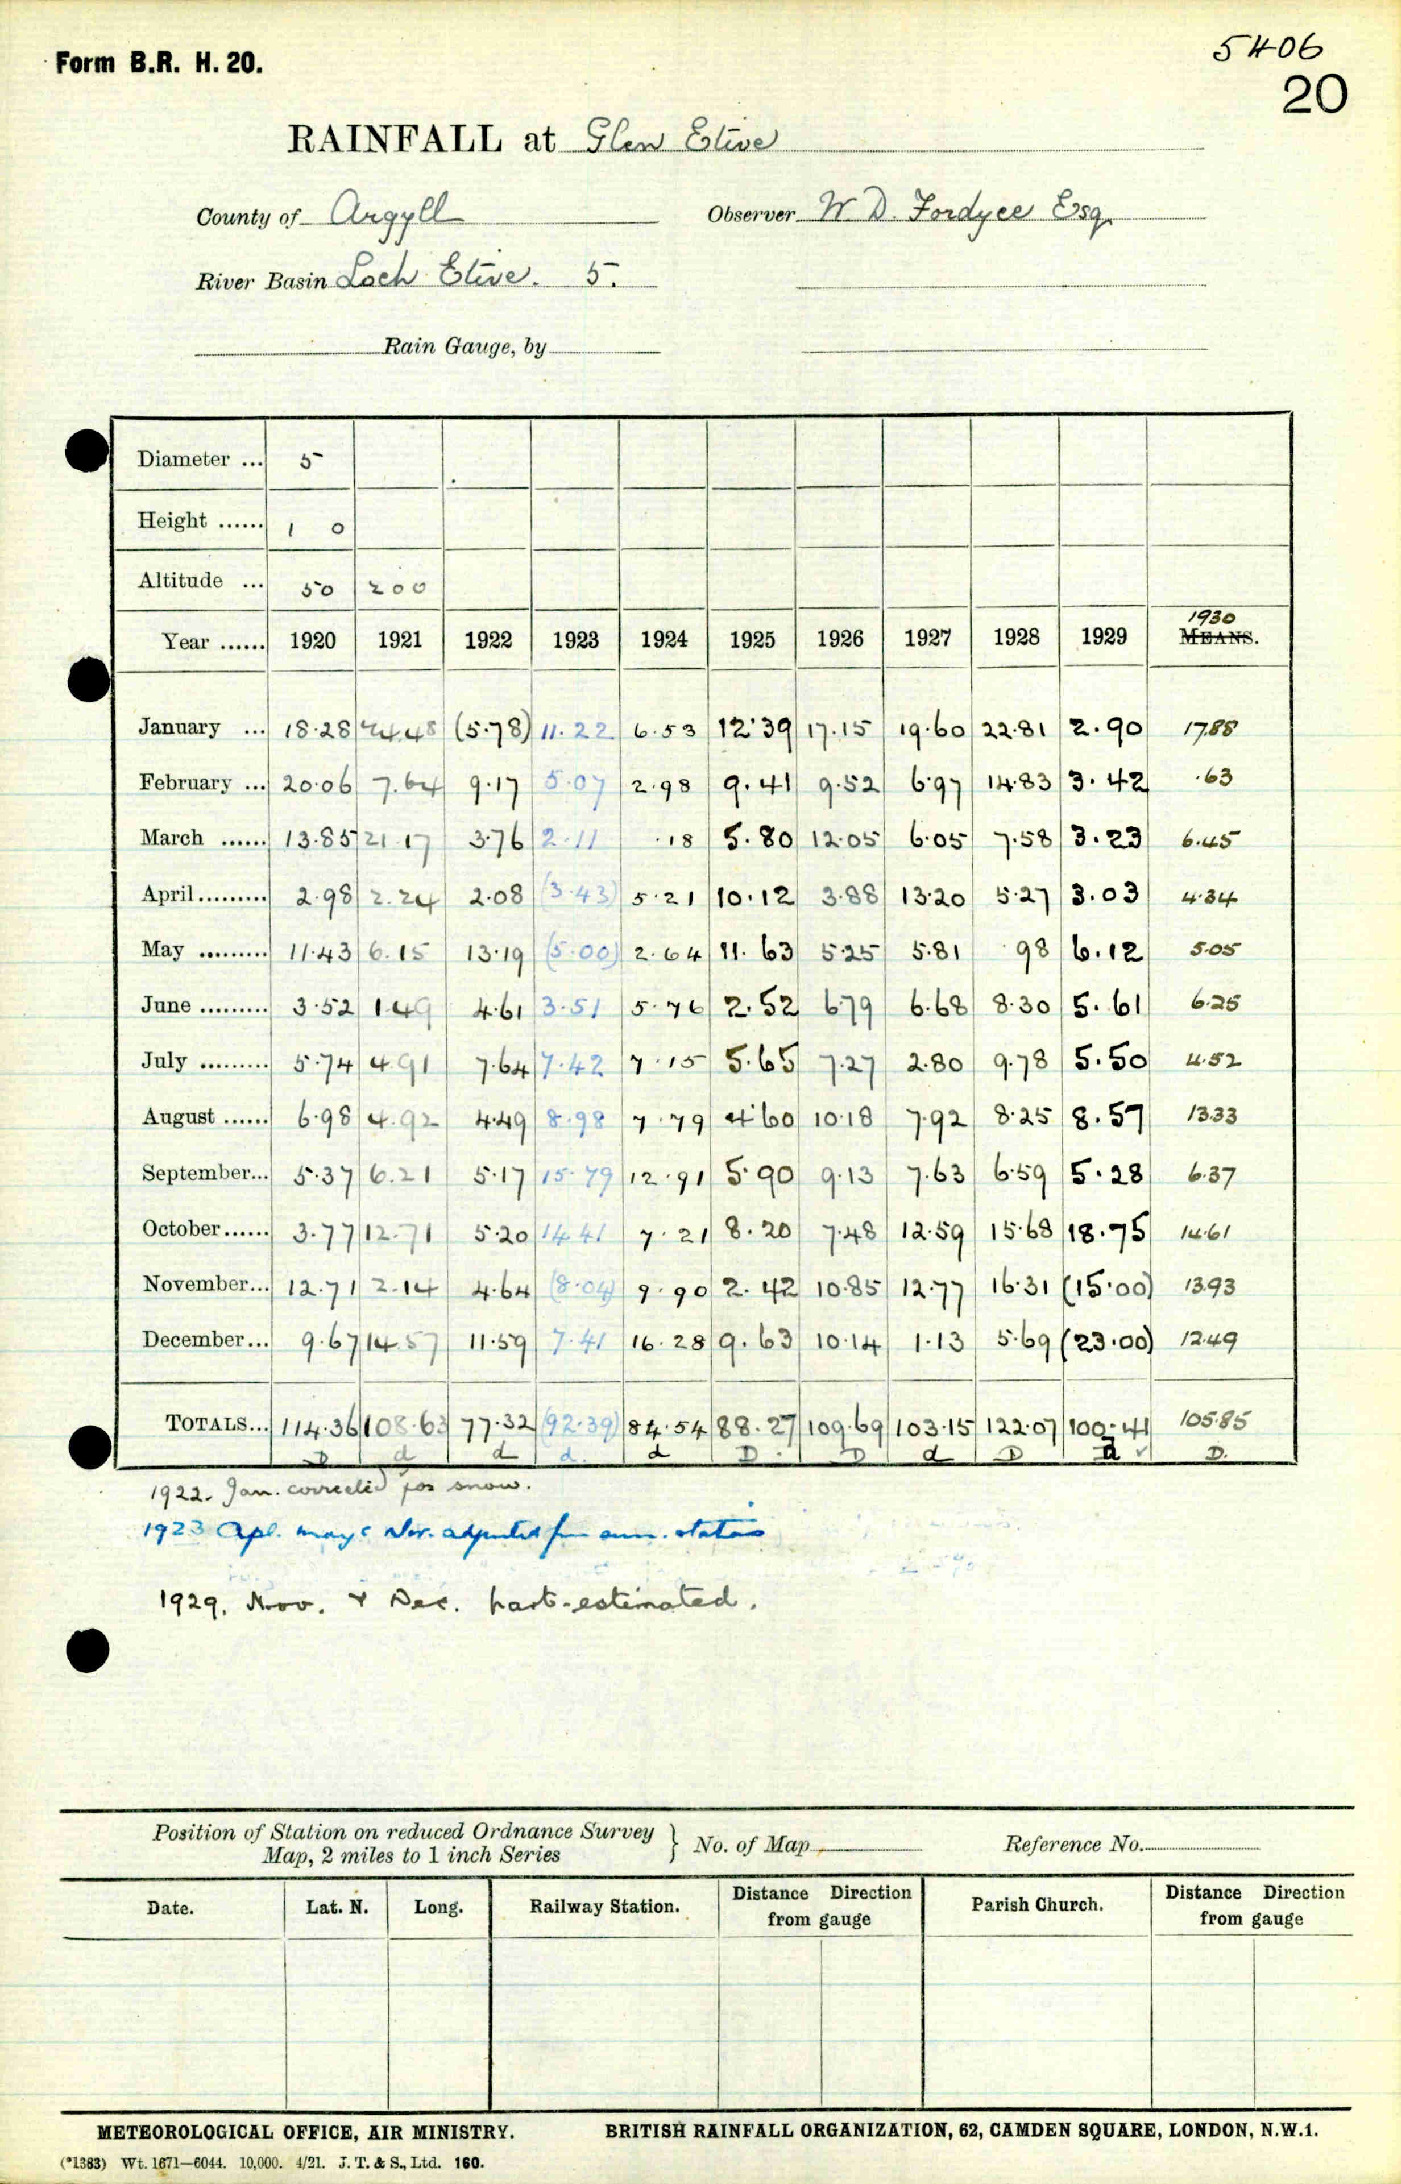 Form B.R. H. 20.
5406
20
RAINFALL at Glen Etive
County of Argyll Observer W D. Fordyce Esq.
River Basin Loch Etive. 5.
Rain Gauge, by
Diameter ... 5
Height ...... 1 0
Altitude ... 50 200
1930
Year ...... 1920 1921 1922 1923 1924 1925 1926 1927 1928 1929 MEANS.
January ... 18.28 24.48 (5.78) 11.22 6.53 12.39 17.15 19.60 22.81 2.90 17.88
February ... 20.06 7.64 9.17 5.07 2.98 9.41 9.52 6.97 14.83 3.42 .63
March ...... 13.85 21.17 3.76 2.11 .18 5.80 12.05 6.05 7.58 3.23 6.45
April ......... 2.98 2.24 2.08 (3.43) 5.21 10.12 3.88 13.20 5.27 3.03 4.34
May ......... 11.43 6.15 13.19 (5.00) 2.64 11.63 5.25 5.81 .98 6.12 5.05
June ......... 3.52 1.49 4.61 3.51 5.76 2.52 6.79 6.68 8.30 5.61 6.25
July ......... 5.74 4.91 7.64 7.42 7.15 5.65 7.27 2.80 9.78 5.50 4.52
August ...... 6.98 4.92 4.49 8.98 7.79 4.60 10.18 7.92 8.25 8.57 13.33
September... 5.37 6.21 5.17 15.79 12.91 5.90 9.13 7.63 6.59 5.28 6.37
October...... 3.77 12.71 5.20 14.41 7.21 8.20 7.48 12.59 15.68 18.75 14.61
November... 12.71 2.14 4.64 (8.04) 9.90 2.42 10.85 12.77 16.31 (15.00) 13.93
December... 9.67 14.57 11.59 7.41 16.28 9.63 10.14 1.13 5.69 (23.00) 12.49
TOTALS... 114.36 108.63 77.32 (92.39) 84.54 88.27 109.69 103.15 122.07 100.41 105.85
D d d d. d D D d D D D.
1922. Jan. corrected for snow.
1923 Apl. may & Nov. adjusted fm surr. stations
1929. Nov. & Dec. part-estimated.
Position of Station on reduced Ordnance Survey
Map, 2 miles to 1 inch Series } No. of Map Reference No.
Date. Lat. N. Long. Railway Station. Distance Direction from gauge Parish Church. Distance Direction from gauge
METEOROLOGICAL OFFICE, AIR MINISTRY. BRITISH RAINFALL ORGANIZATION, 62, CAMDEN SQUARE, LONDON, N.W.1.
(*1383) Wt. 1671—6044. 10,000. 4/21. J. T. & S., Ltd. 160.